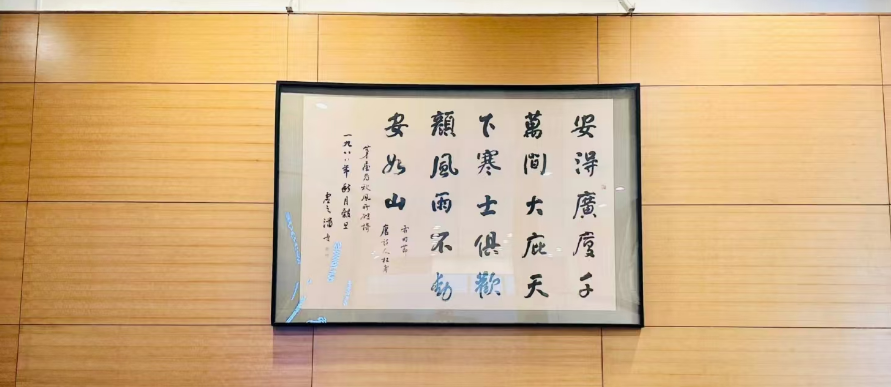 安得廣廈千
萬間大庇天
下寒士俱歡
顏風雨不動
安如山
唐詩人杜甫
茅屋為秋風所破詩
一九八八年